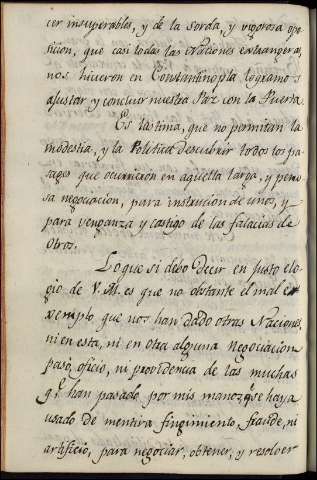 cer insuperables, y de la sorda, y vigorosa opo
sicion, que casi todas las Naciones extrangeras
nos hicieron en Constantinopla logramos
ajustar y concluir nuestra Paz con la Puerta.
Es lastima, que no permitan la
modestia, y la Politica descubrir todos los pa
sages que ocurrieron en aquella larga, y peno
sa negociacion, para instruccion de unos, y
para venganza y castigo de las falacias de
otros.
Lo que si debo decir en justo elo
gio de V. M. es que no obstante el mal e
xemplo que nos han dado otras Naciones,
ni en esta, ni en otra alguna negociacion
paso, oficio, ni providencia de las muchas
q.e han pasado por mis manos, se haya
usado de mentira fingimiento fraude, ni
artificio, para negociar, obtener, y resolver